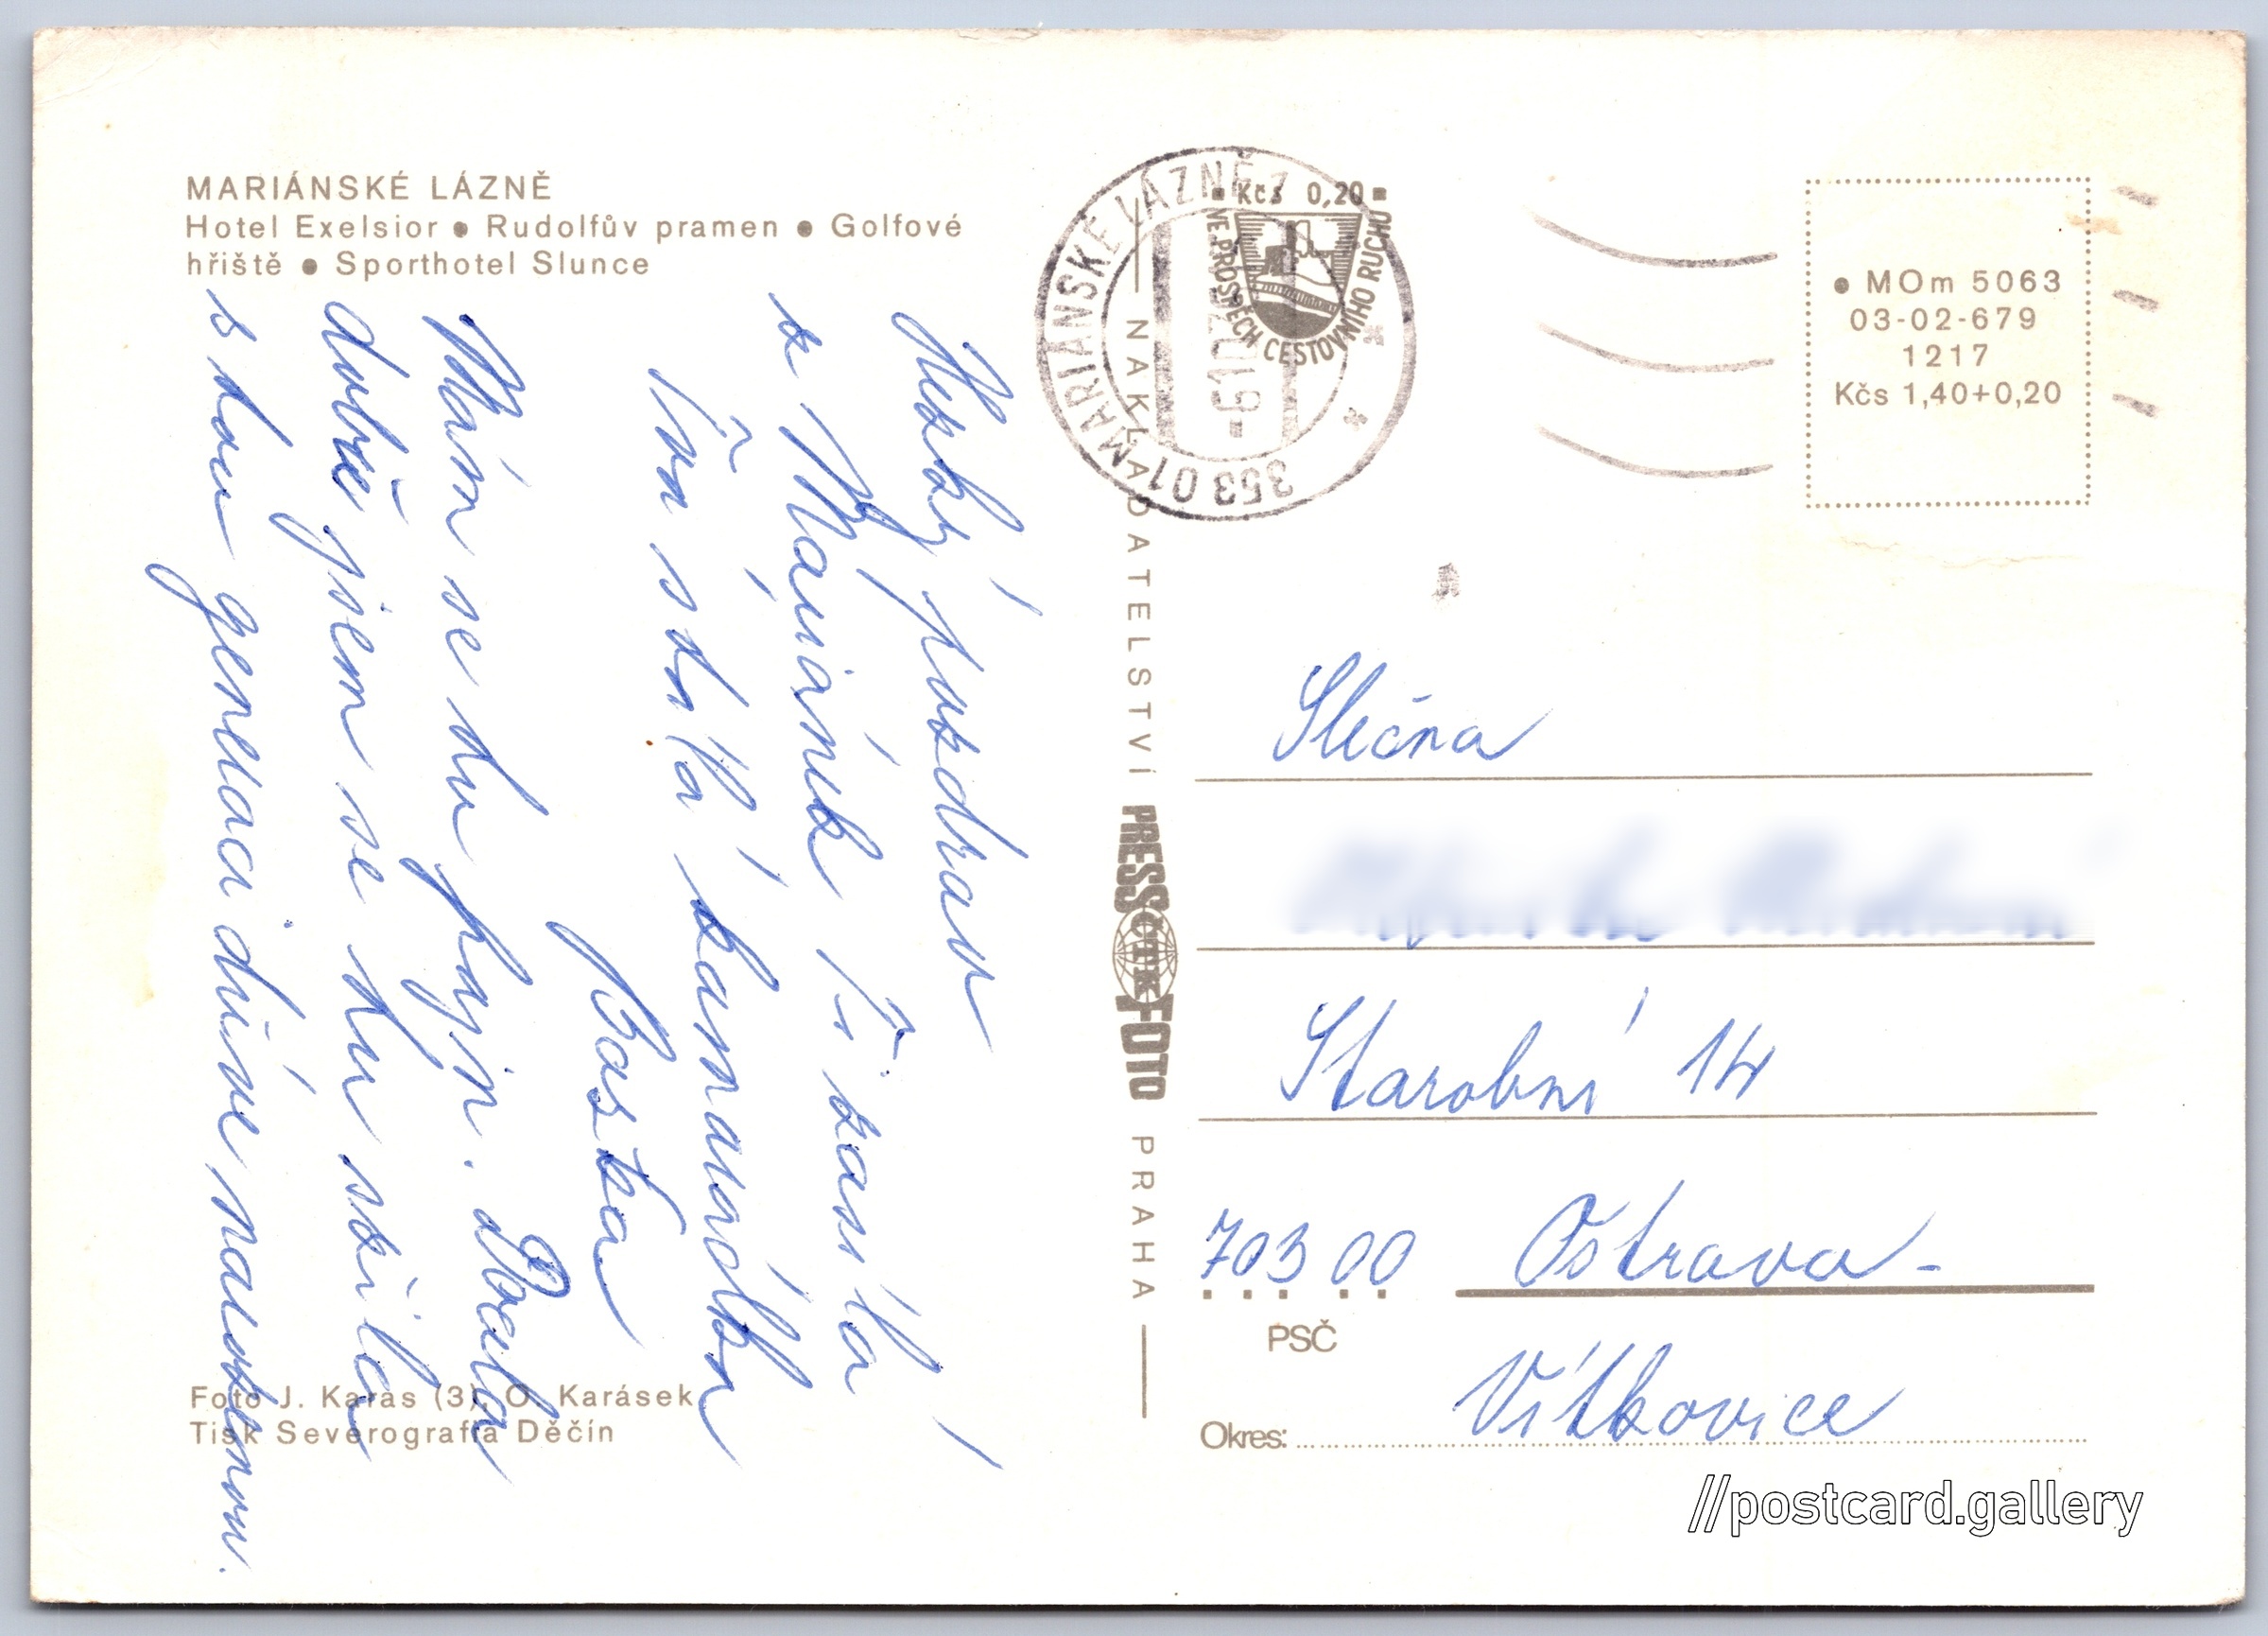 MARIÁNSKÉ LÁZNĚ
Hotel Exelsior ● Rudolfův pramen ● Golfové
hřiště ● Sporthotel Slunce
Hezký pozdrav
z Mariánek Ti zasílá
Tvá stálá kamarádka
Baška
Mám se tu fajn. Byla
dobře jsem se tu
s tou generací
Foto J. Karas (3), O. Karásek
Tisk Severografia Děčín
NAKLADATELSTVÍ PRESSFOTO PRAHA
ČTK
MARIÁNSKÉ LÁZNĚ 1
353 01
Kčs 0,20
VE PROSPĚCH CESTOVNÍHO RUCHU
● MOm 5063
03-02-679
1217
Kčs 1,40+0,20
Slečna
Starobní 14
703 00 Ostrava-
PSČ
Vítkovice
Okres:
//postcard.gallery